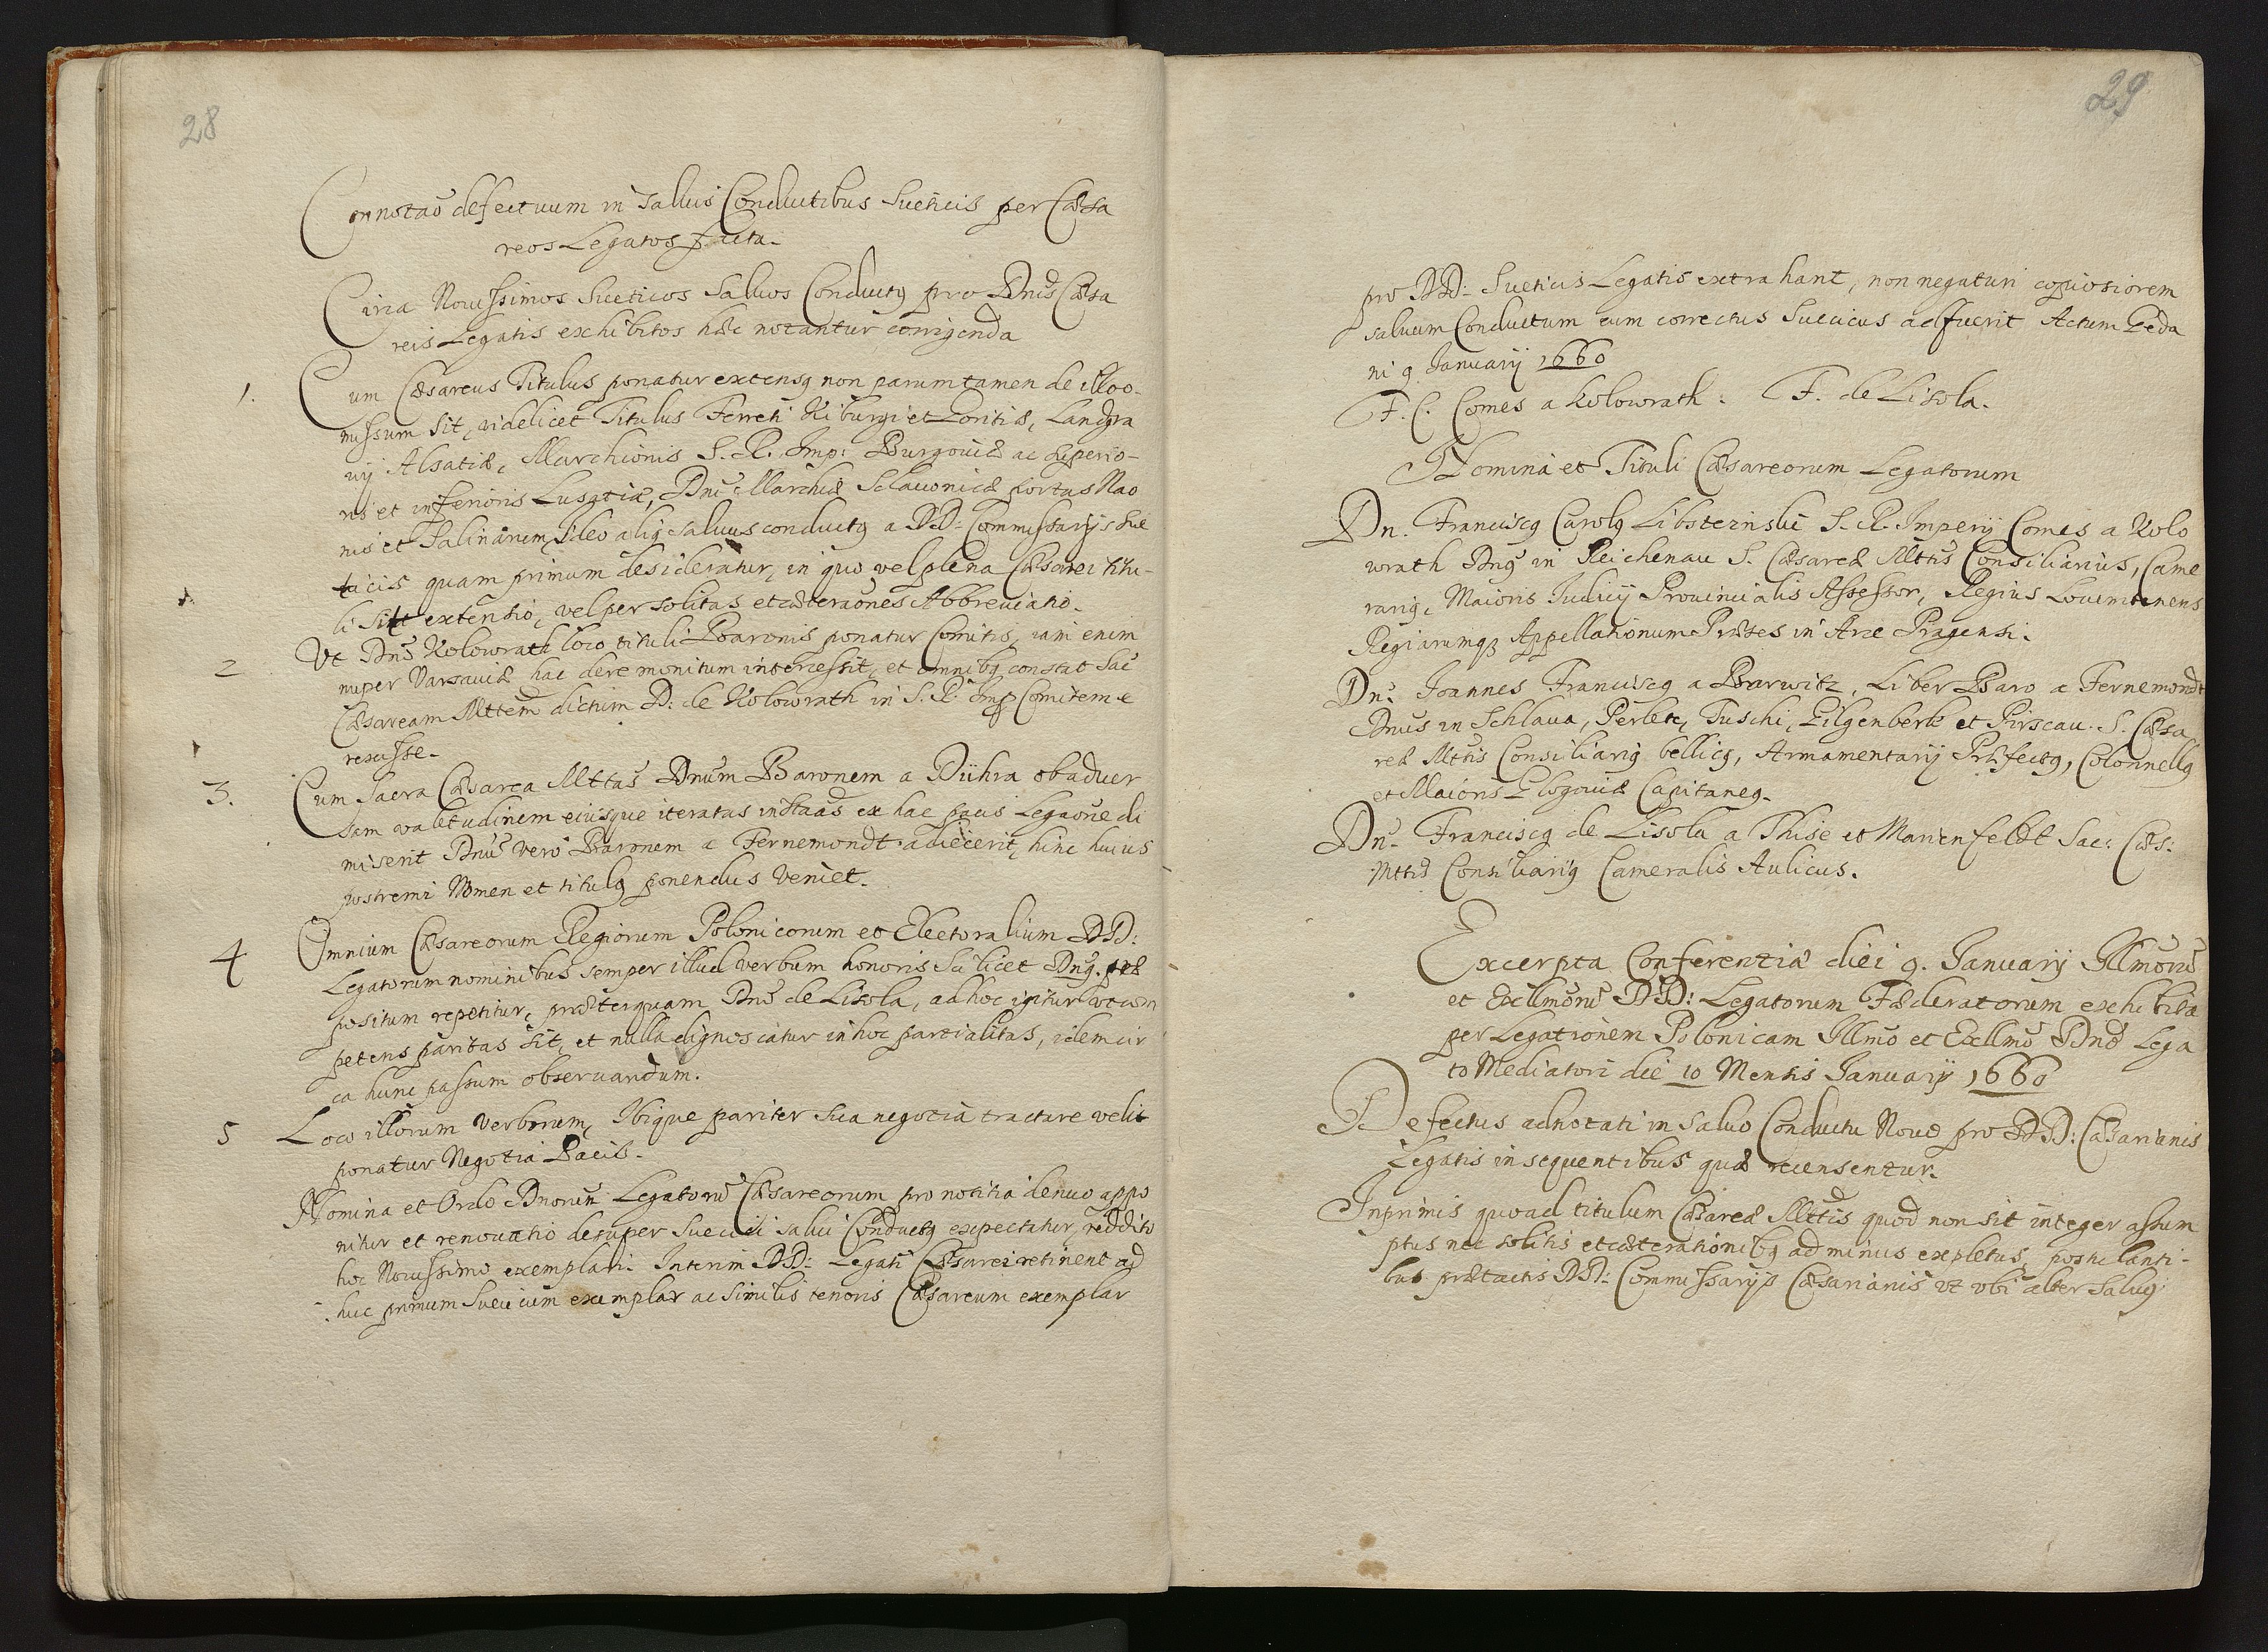 28
Connotaō defectuum in Salvis Conductibus Sueticis per Cæsa
reos Legatos facta.
Circa Nouissimos Sueticos Saluos Conductꝯ pro Dnis Cæsa
reis Legatis exhibitos hæc notantur corrigenda
1. Cum Cæsareus Titulus ponatur extensꝯ non parum tamen de illo o-
missum sit, videlicet Titulus Ferreti Kiburgi et Goritiæ, Landgra
vij Alsatiæ, Marchionis S. R. Imp: Burgouiæ ac superio-
ris et inferioris Lusatiæ, Dni Marchiæ Sclauonicæ portus Nao
nis et Salinarum, Ideo aliꝯ saluus conductꝯ a DD: Commissarijs Sue
ticis quam primum desideratur, in quo vel plena Cæsarei titu-
li sit extensio, vel per solitas etcæteraōnes Abbreuiatio.
2 Vt Dnō Kolowrath loco tituli Baronis ponatur Comitis, iam enim
nuper Varsauiæ hac de re monitum intercessit, et omnibꝯ constat Sac
Cæsaream Mttem dictum D: de Kolowrath in S. R. Imp Comitem e
rexisse.
3. Cum Sacra Cæsarea Mttas Dnum Baronem a Dühra ob aduer
sam valetudinem eiusque iteratas instaās ex hac pacis Legaōne di
miserit Dnū vero Baronem a Fernemondt adiecerit, hinc huius
postremi Nomen et titulꝯ ponendus veniet.
4 Omnium Cæsareorum Regiorum Polonicorum et Electoralium DD:
Legatorum nominibus semper illud verbum honoris Scilicet Dnꝯ. præ
positum repetitur, præterquam Dnō de Lisola, ad hoc igitur
petens paritas sit, et nulla dignoscatur in hoc partialitas, idem cir
ca hunc passum obseruandum.
5 Loco illorum verborum, Ibique pariter sua negotia tractare velit
ponatur Negotia Pacis.
Nomina et Ordo Dnorum Legatorū Cæsareorum pro notitia denuo appo
nitur et renouatio desuper Suecici salui Conductꝯ expectatur, reddito
hoc Nouissimo exemplari. Interim DD: Legati Cæsarei retinent ad
huc primum Suecicum exemplar ac similis tenoris Cæsareum exemplar
29
pro DD: Sueticis Legatis extrahant, non negaturi copiosiorem
saluum Conductum cum correctus Suecicus adfuerit Actum Geda
ni 9 Januarij 1660
F. C. Comes a Kolowrath. F. de Lisola.
Nomina et Tituli Cæsareorum Legatorum
Dn. Franciscꝯ Carolꝯ Libsteinski S. R. Imperij Comes a Kolo
wrath Dnꝯ in Reichenau S. Cæsareæ Mttis Consiliarius, Came
rariꝯ, Maioris Iudicij Prouincialis Assessor, Regius Locumtenens
Regiarumqꝫ Appellationum Præses in Arce Pragensi.
Dn: Joannes Franciscꝯ a Barwitz, Liber Baro a Fernemondt
Dnus in Schlaua, Perlek, Tuschi, Gilgenberk et Pirscau. S. Cæsa
reæ Mttis Consiliariꝯ bellicꝯ, Armamentarij Præfectꝯ, Colonnellꝯ
et Maioris Glogouiæ Capitaneꝯ.
Dn: Franciscꝯ de Lisola a Thise et Marienfeldt Sac: Cæs:
Mttis Consiliariꝯ Cameralis Aulicus.
Excerpta Conferentiæ diei 9. Januarij Illmorū
et Exllmorū DD: Legatorum Fæderatorum exhibita
per Legationem Polonicam Illmo et Exllmo Dnō Lega
to Mediatori die 10 Mensis Januarij 1660
Defectus adnotati in saluo Conductu Nouo pro DD: Cæsarianis
Legatis in sequentibus quæ recensentur.
Inprimis quoad titulum Cæsareæ Mttis quod non sit integer assum
ptus nec solitis etcæterationibꝯ ad minus expletus, postulanti-
bus prætactis DD: Commissarijs Cæsarianis vt vbi alter Saluꝯ